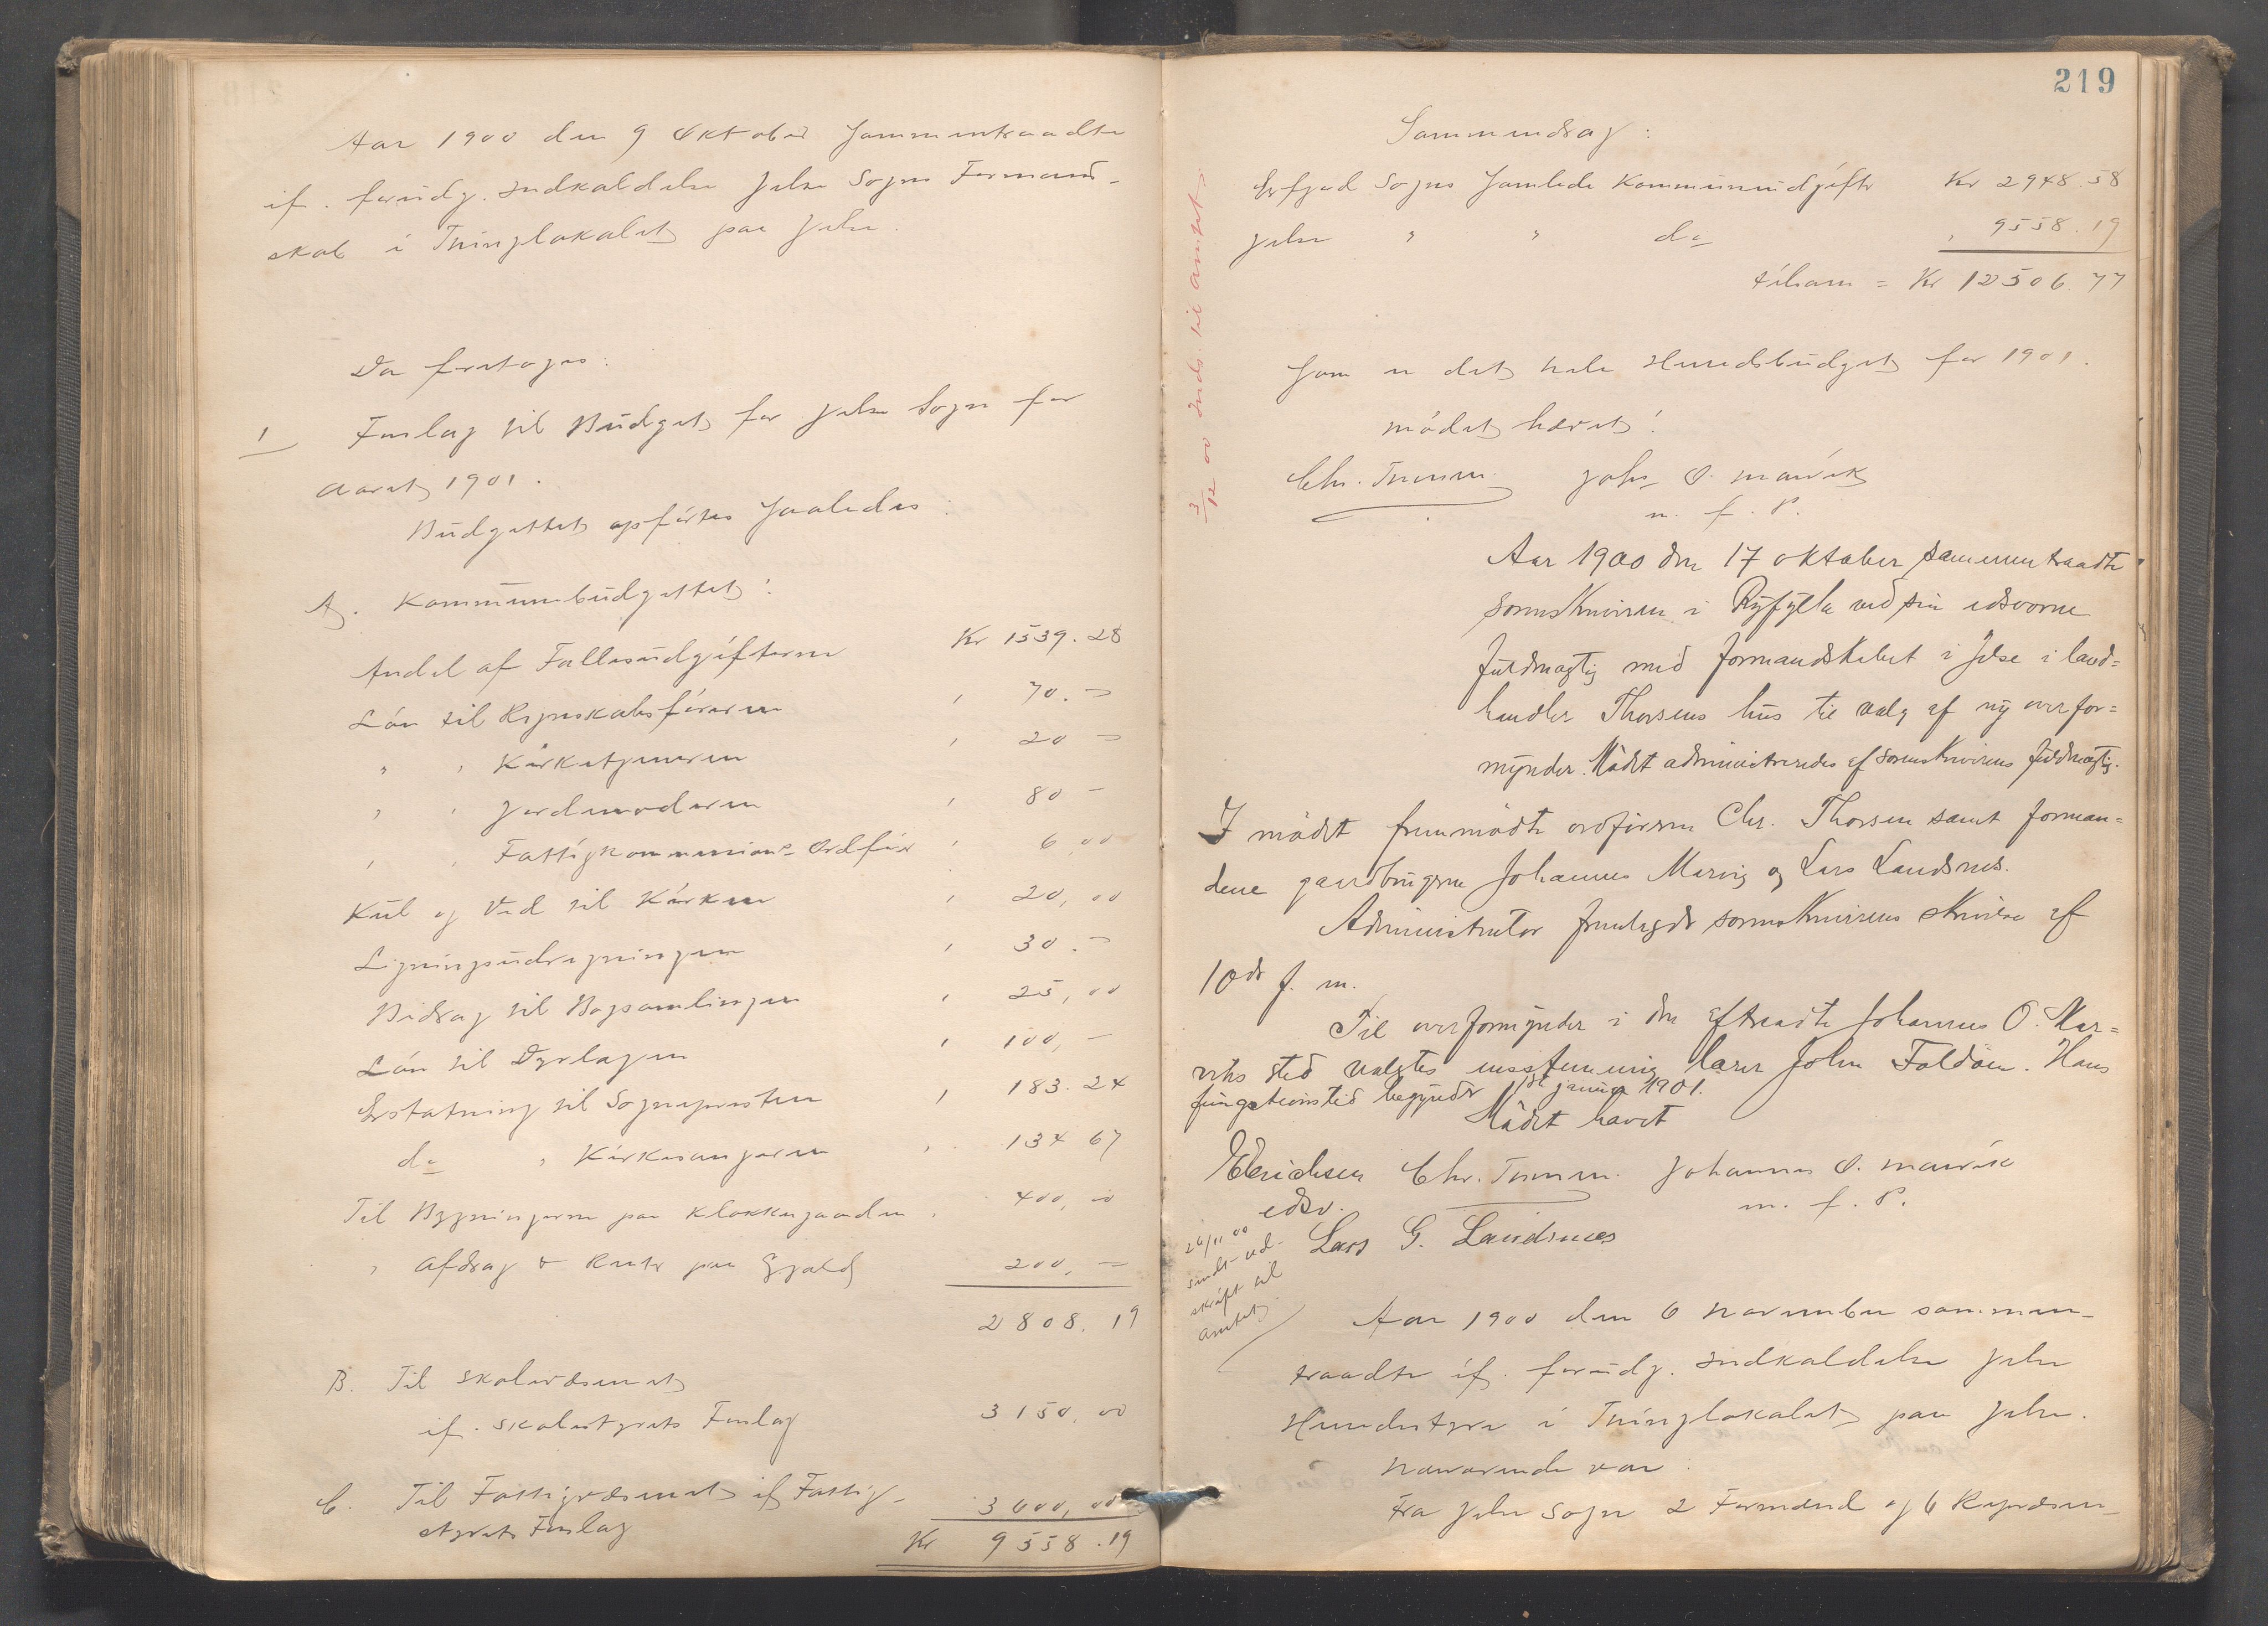 Aar 1900 den 9 Oktober sammentraadte
if. forudg. Indkaldelse Jelse Sogns Formand-
skab i Thinglokalet paa Jelse.
Da foretoges:
1 Forslag til Budget for Jelse Sogn for
Aaret 1901.
Budgettet opførtes saaledes:
A. Kommunebudgettet:
Andel af Fællesudgifterne Kr 1539.28
Løn til Regnskabsføreren " 70.-
" " Kirketjeneren " 20 -
" " Jordmoderen " 80 -
" " Fattigkommissions Ordfører " 6,00
Kul og Ved til Kirken " 20,00
Ligningsudregningen " 30.-
Bidrag til Bogsamlingen " 25,00
Løn til Dyrlægen " 100,-
Erstatning til Sognepresten " 183.24
do " Kirkesangeren " 134 67
Til Bygningerne paa Klokkergaarden " 400,00
" Afdrag & Renter paa Gjæld 200,-
2808.19
B. Til Skolevæsenet
if. Skolestyrets Forslag 3150,00
C. Til Fattigvæsenet if Fattig-
styrets Forslag 3600,00
Kr 9558.19
219
Sammendrag:
Erfjord Sogns samlede Kommuneudgifter Kr 2948.58
Jelse " " do " 9558.19
tilsam = Kr 12506.77
3/12 00 Inds. til Amtet
som er det hele Herredsbudget for 1901.
Mødet hævet!
Chr. Thorsen Johs O. Marvik
m. f. P.
Aar 1900 den 17 oktober sammentraadte
sorenskriveren i Ryfylke ved sin edsvorne
fuldmægtig med formandskabet i Jelse i land=
handler Thorsens hus til valg af ny overfor=
mynder. Mødet administreredes af sorenskriverens fuldmægtig.
I mødet fremmødte ordføreren Chr. Thorsen samt forman=
dene gaardbrugerne Johannes Marvig og Lars Landsnes.
Administrator fremlagde sorenskriverens skrivelse af
10de f. m.
Til overformynder i den aftraadte Johannes O. Mar=
viks sted valgtes enstemmig lærer John Foldøen. Hans
fungstionstid begynder 1ste januar 1901.
Mødet hævet
Erichsen Chr. Thorsen. Johannes O. Marvik
edsv. m. f. P.
Lars G. Landsnes
26/11 00
sendt ud-
skrift til
Amtet
Aar 1900 den 6 November sammen-
traadte if. forudg. Indkaldelse Jelse
Herredsstyre i Thinglokalet paa Jelse.
Nærværende var:
Fra Jelse Sogn 2 Formænd og 6 Repræsen-